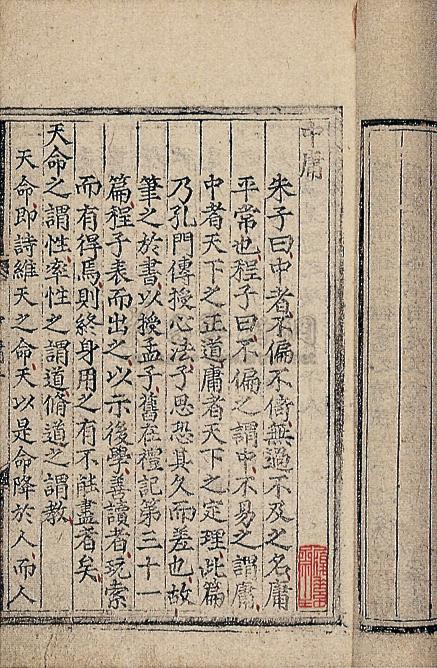 中庸
朱子曰中者不偏不倚無過不及之名庸
平常也程子曰不偏之謂中不易之謂庸
中者天下之正道庸者天下之定理此篇
乃孔門傳授心法子思恐其久而差也故
筆之於書以授孟子舊在禮記第三十一
篇程子表而出之以示後學善讀者玩索
而有得焉則終身用之有不能盡者矣
天命之謂性率性之謂道脩道之謂教
天命即詩維天之命天以是命降於人而人